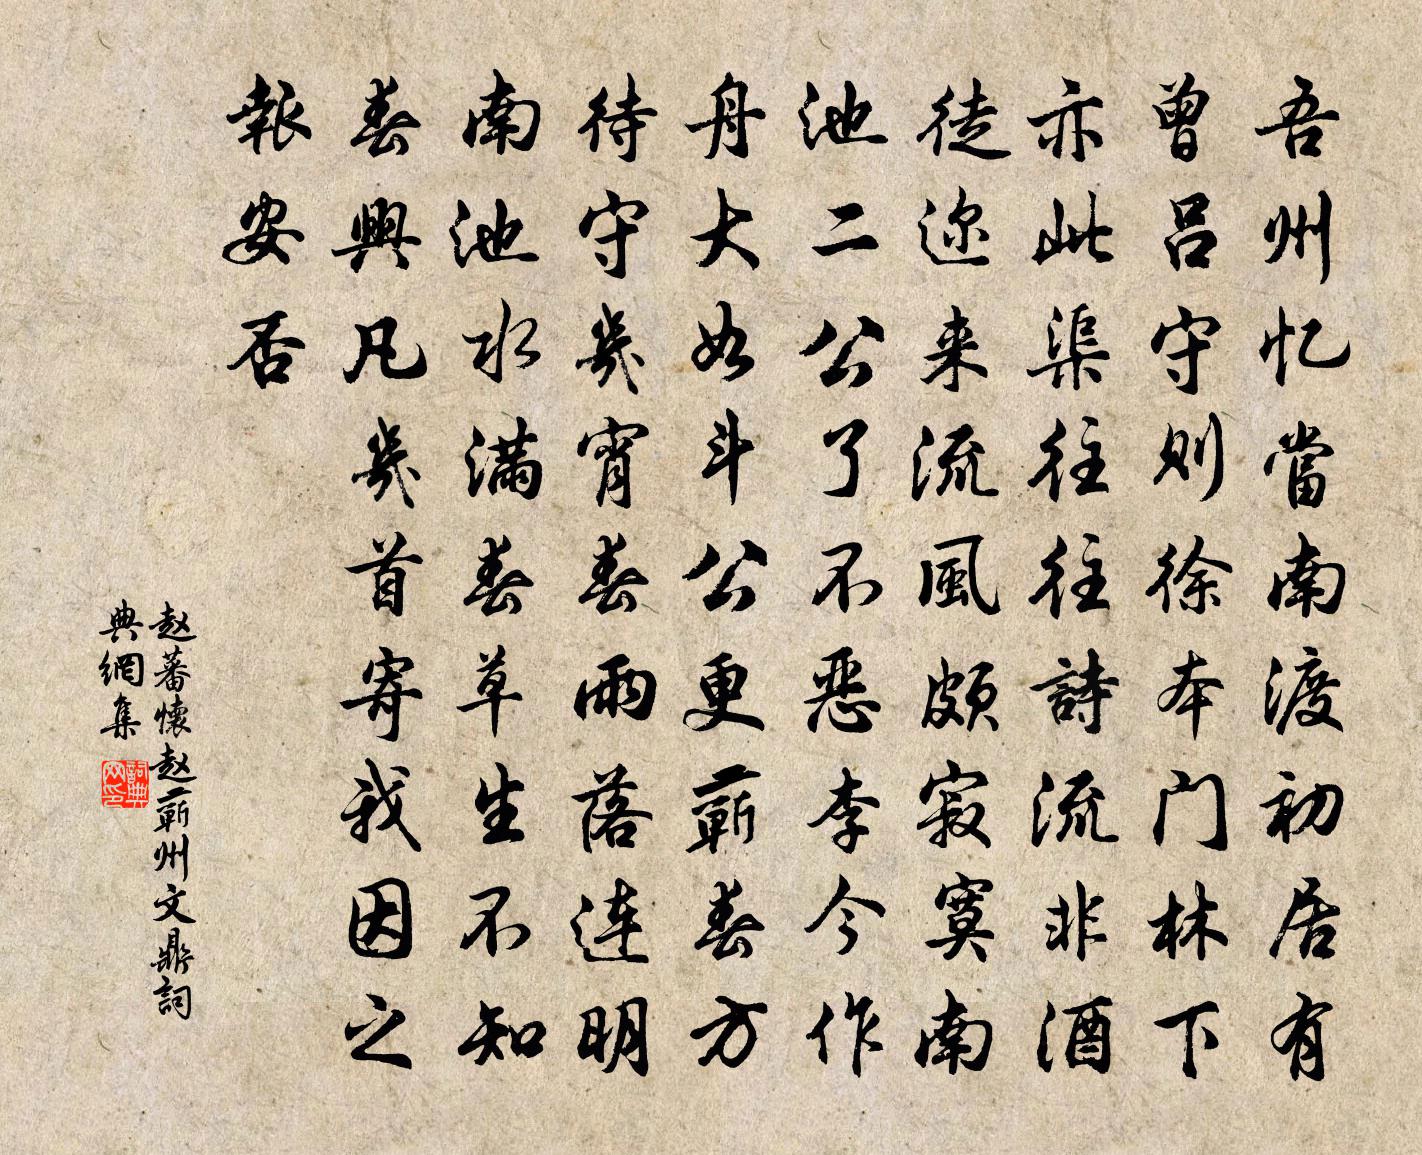 吾州忆當南渡初居有
曾吕守则徐本门林下
亦此渠往往詩流非酒
徒迩来流風頗寂寞南
池二公了不恶李今作
舟大如斗公更蕲春方
待守幾宵春雨落连明
南池水满春草生不知
春興凡幾首寄我因之
報安否
赵蕃懷赵蕲州文鼎詞
典網集
詞典
网印